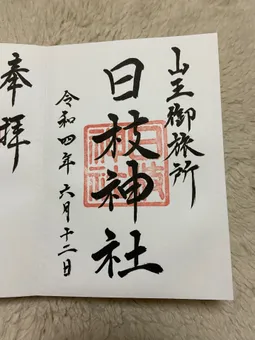 山王御旅所
日枝神社
令和四年六月十二日
奉拝